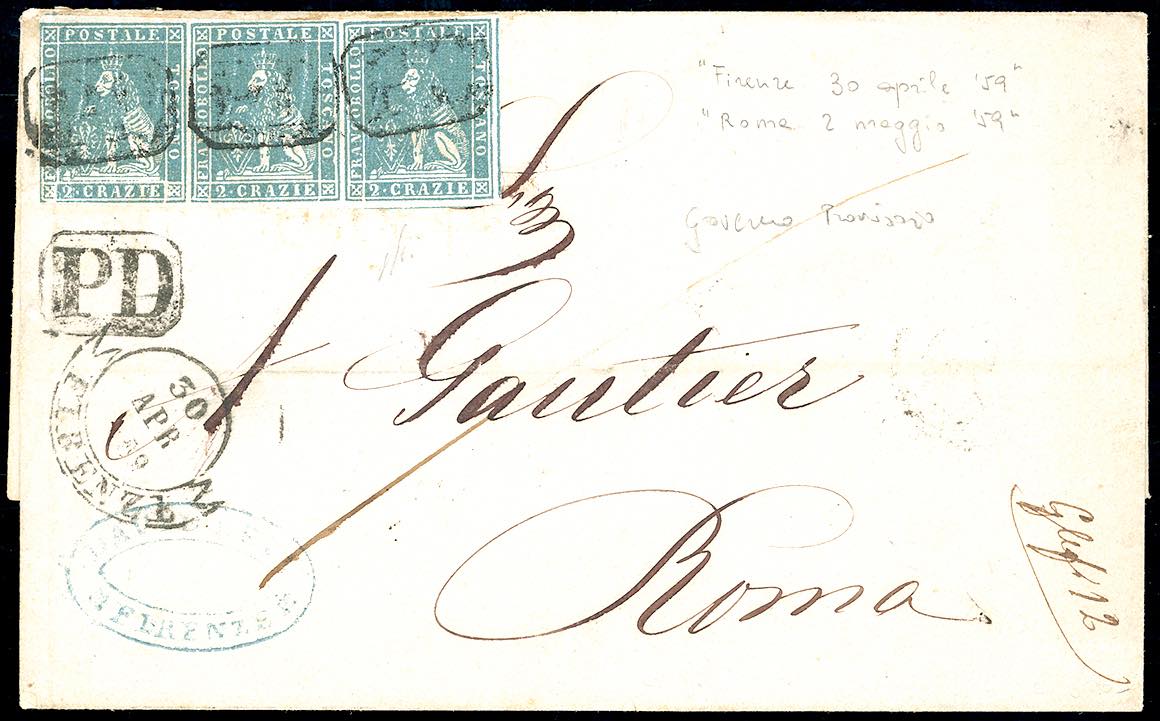 POSTALE POSTALE POSTALE
FRANCOBOLLO FRANCOBOLLO TOSCANO FRANCOBOLLO TOSCANO
2 · CRAZIE 2 · CRAZIE 2 · CRAZIE
PD
PD
PD
"Firenze 30 aprile '59"
"Roma 2 maggio '59"
Governo Provvisorio
PD
30
APR
59
FIRENZE
Gautier
Roma
FIRENZE